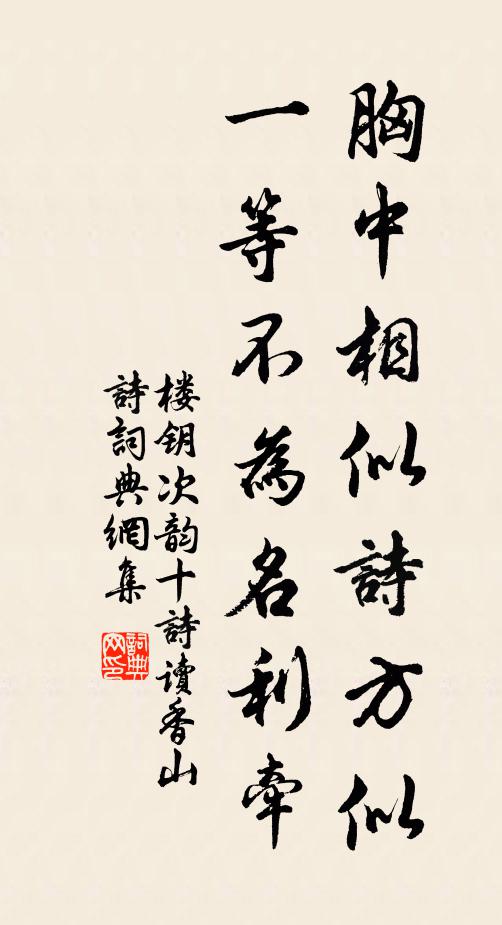 胸中相似詩方似
一等不為名利牽
楼钥次韵十詩讀香山
詩詞典網集
詞典
网印